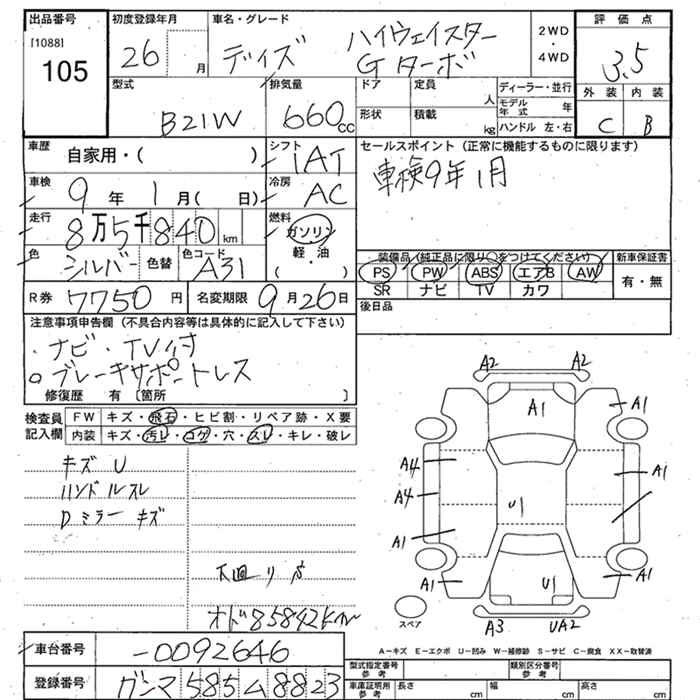 出品番号 初度登録年月 車名・グレード 2WD ・ 4WD 評価点
[1088] 105 26 月 デイズ ハイウェイスター Gターボ 3.5
外装 内装
C B
型式 排気量 ドア 定員 人 ディーラー・並行
B21W 660 cc 形状 積載 kg モデル年式 年
ハンドル 左・右
車歴 自家用・( ) シフト 1AT セールスポイント (正常に機能するものに限ります)
車検 9年 1月( 日) 冷房 AC 車検9年1月
走行 8万5千840 km 燃料 ガソリン・軽・油 ( )
色 シルバー 色替 色コード A31
装備品 (純正品に限り○をつけてください) 新車保証書
PS PW ABS エアB AW 有・無
SR ナビ TV カワ
R券 7750円 名変期限 9月26日 後日品
注意事項申告欄 (不具合内容等は具体的に記入して下さい)
・ナビ・TV付
○ブレーキサポートレス
修復歴 有 〔箇所 〕
検査員記入欄 FW キズ・飛石・ヒビ割・リペア跡・X要
内装 キズ・汚レ・コゲ・穴・スレ・キレ・破レ
キズ U
ハンドルスレ
Dミラーキズ
下廻りサ
オド85842km
A2 A2
A1 A1
A4 A1
A4 U1
A1
A1 U1 A1
スペア A3 UA2
A-キズ E-エクボ U-凹み W-補修跡 S-サビ C-腐食 XX-取替済
車台番号 -0092646
登録番号 585ム8823
型式指定番号 参考 類別区分番号 参考
車庫証明用 参考 長さ cm 幅 cm 高さ cm